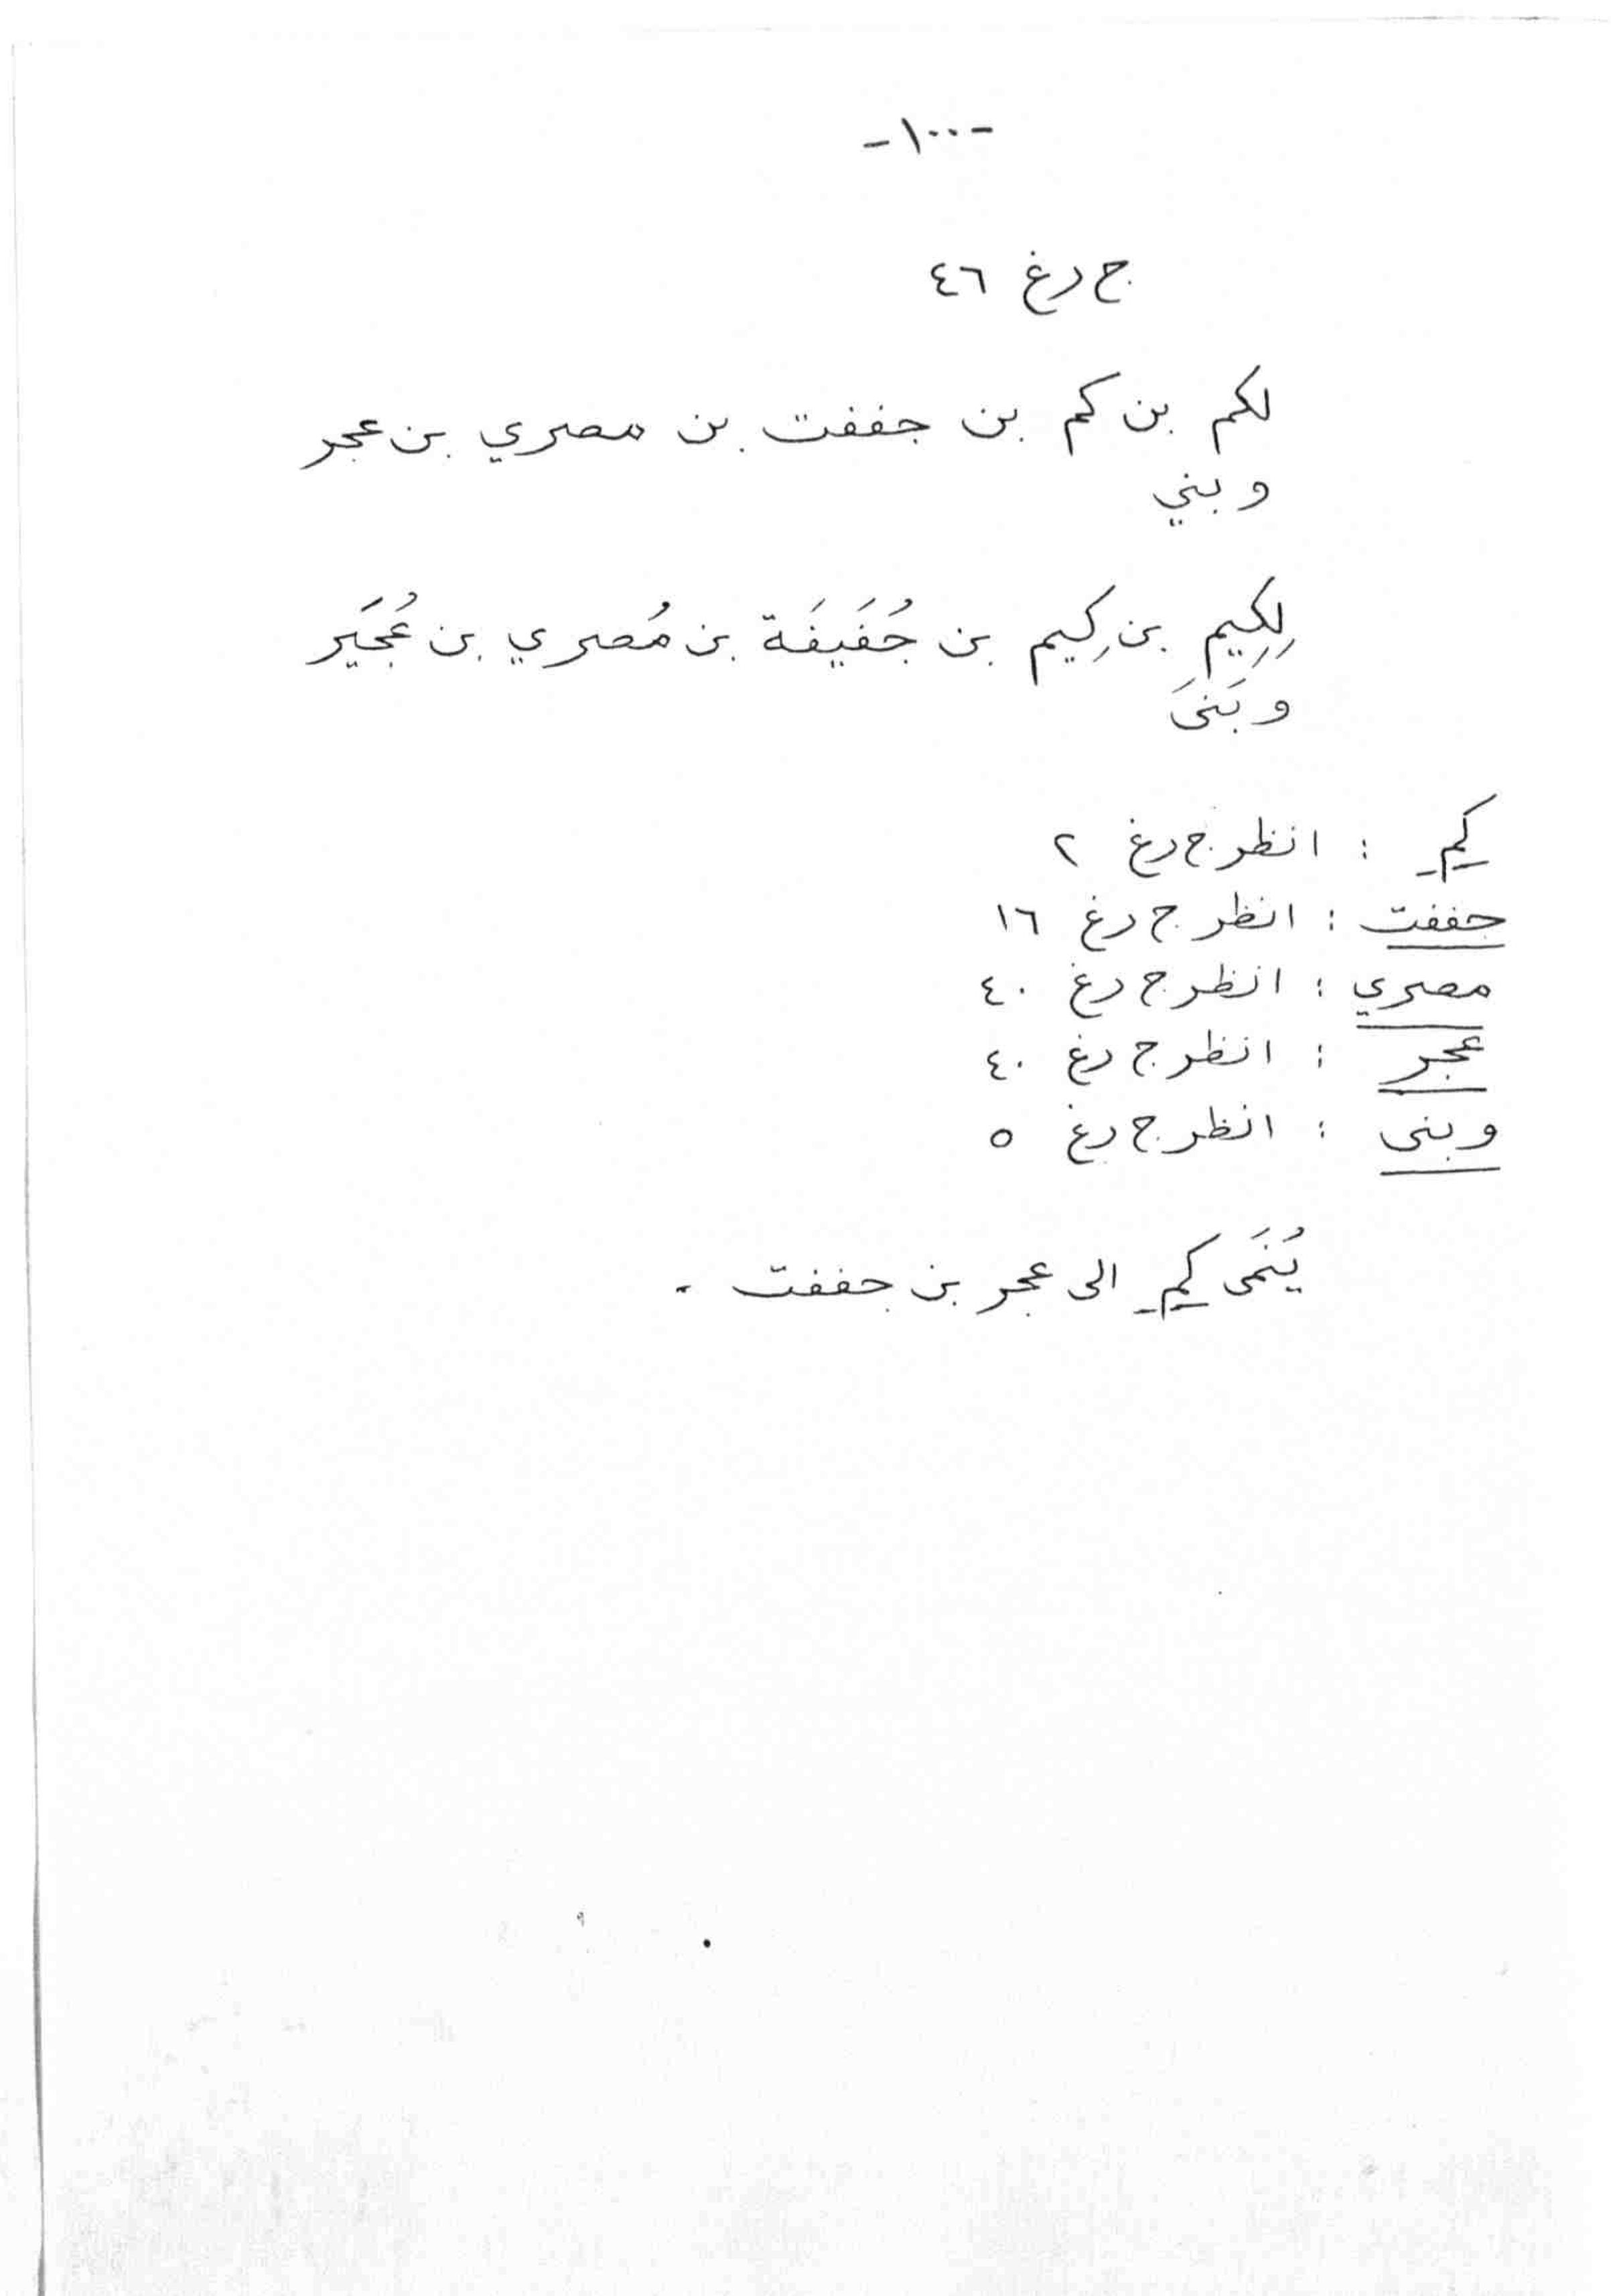 -١٠٠-
ج رغ ٤٦
لكم بن كم بن جففت بن مصري بن عجر
و بني
لِكِيم بن كِيم بن جُفَيفَة بن مُصري بن عُجَير
و بَنىَ
كم : انظر ج رغ ٢
جففت : انظر ج رغ ١٦
مصري : انظر ج رغ ٤٠
عجر : انظر ج رغ ٤٠
و بنى : انظر ج رغ ٥
يُنَمى كم الى عجر بن جففت .